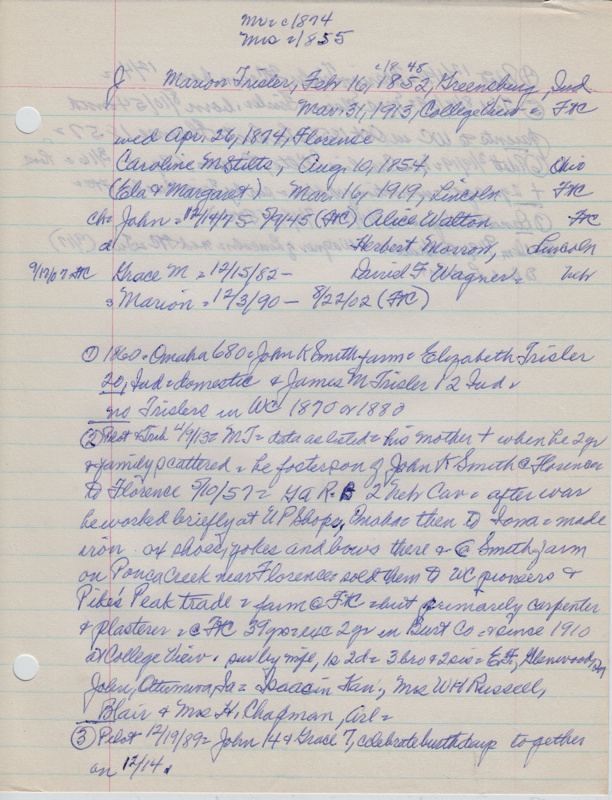 Mr = c1874
Mrs = 1855
c 18-48
J Marion Trisler, Feb 16, 1852, Greensburg, Ind
Mar. 31, 1913, College View = FtC
wed Apr. 26, 1874, Florence
Caroline M Stilts, Aug. 10, 1854 Ohio
(Ela & Margaret) - Mar. 16, 1919, Lincoln FtC
ch = John = 12/14/75 - 5/9/45 (FtC) Alice Walton FtC
d Herbert Morrow, Lincoln
9/17/07 FtC Grace M = 12/15/82 - David F Wagner = Nebr
s Marion = 12/3/90 - 8/22/02 (FtC)
① 1860 = Omaha 680 = John K Smith farm = Elizabeth Trisler
20, Ind = domestic & James M Trisler 12 Ind =
no Trislers in WC 1870 or 1880
② Pilot & Trib 4/9/13 = MT = data as listed = his mother + when he 2 yr
& family scattered = he foster son of John K Smith @ Florence =
to Florence 5/10/57 = GAR - B 2 Nebr Cav = after war
he worked briefly at UP Shops, Omaha = then to Iowa = made
iron ox shoes, yokes and bows there & @ Smith farm
on Ponca Creek near Florence = sold them to UC pioneers &
Pike's Peak trade = farm @ FtC = but primarily carpenter
& plasterer = @ FtC 39 yrs = exc 2 yr in Burt Co. = & since 1910
at College View. sur by wife, 1s 2d = 3 bro & 2 sis = EH, Glenwood,
John, Ottumwa, Ia = Isaac in Kan., Mrs WH Russell,
Blair & Mrs H. Chapman, Arl =
③ Pilot 12/19/89 = John 14 & Grace 7, celebrate birthdays together
on 12/14.